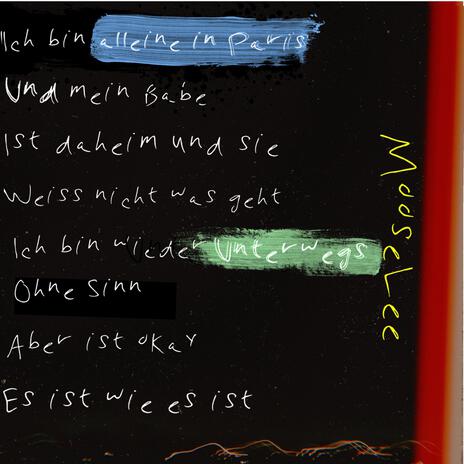 Ich bin alleine in Paris
Und mein Babe
Ist daheim und sie
Weiss nicht was geht
Ich bin wieder Unterwegs
Ohne Sinn
Aber ist okay
Es ist wie es ist
MooseLee